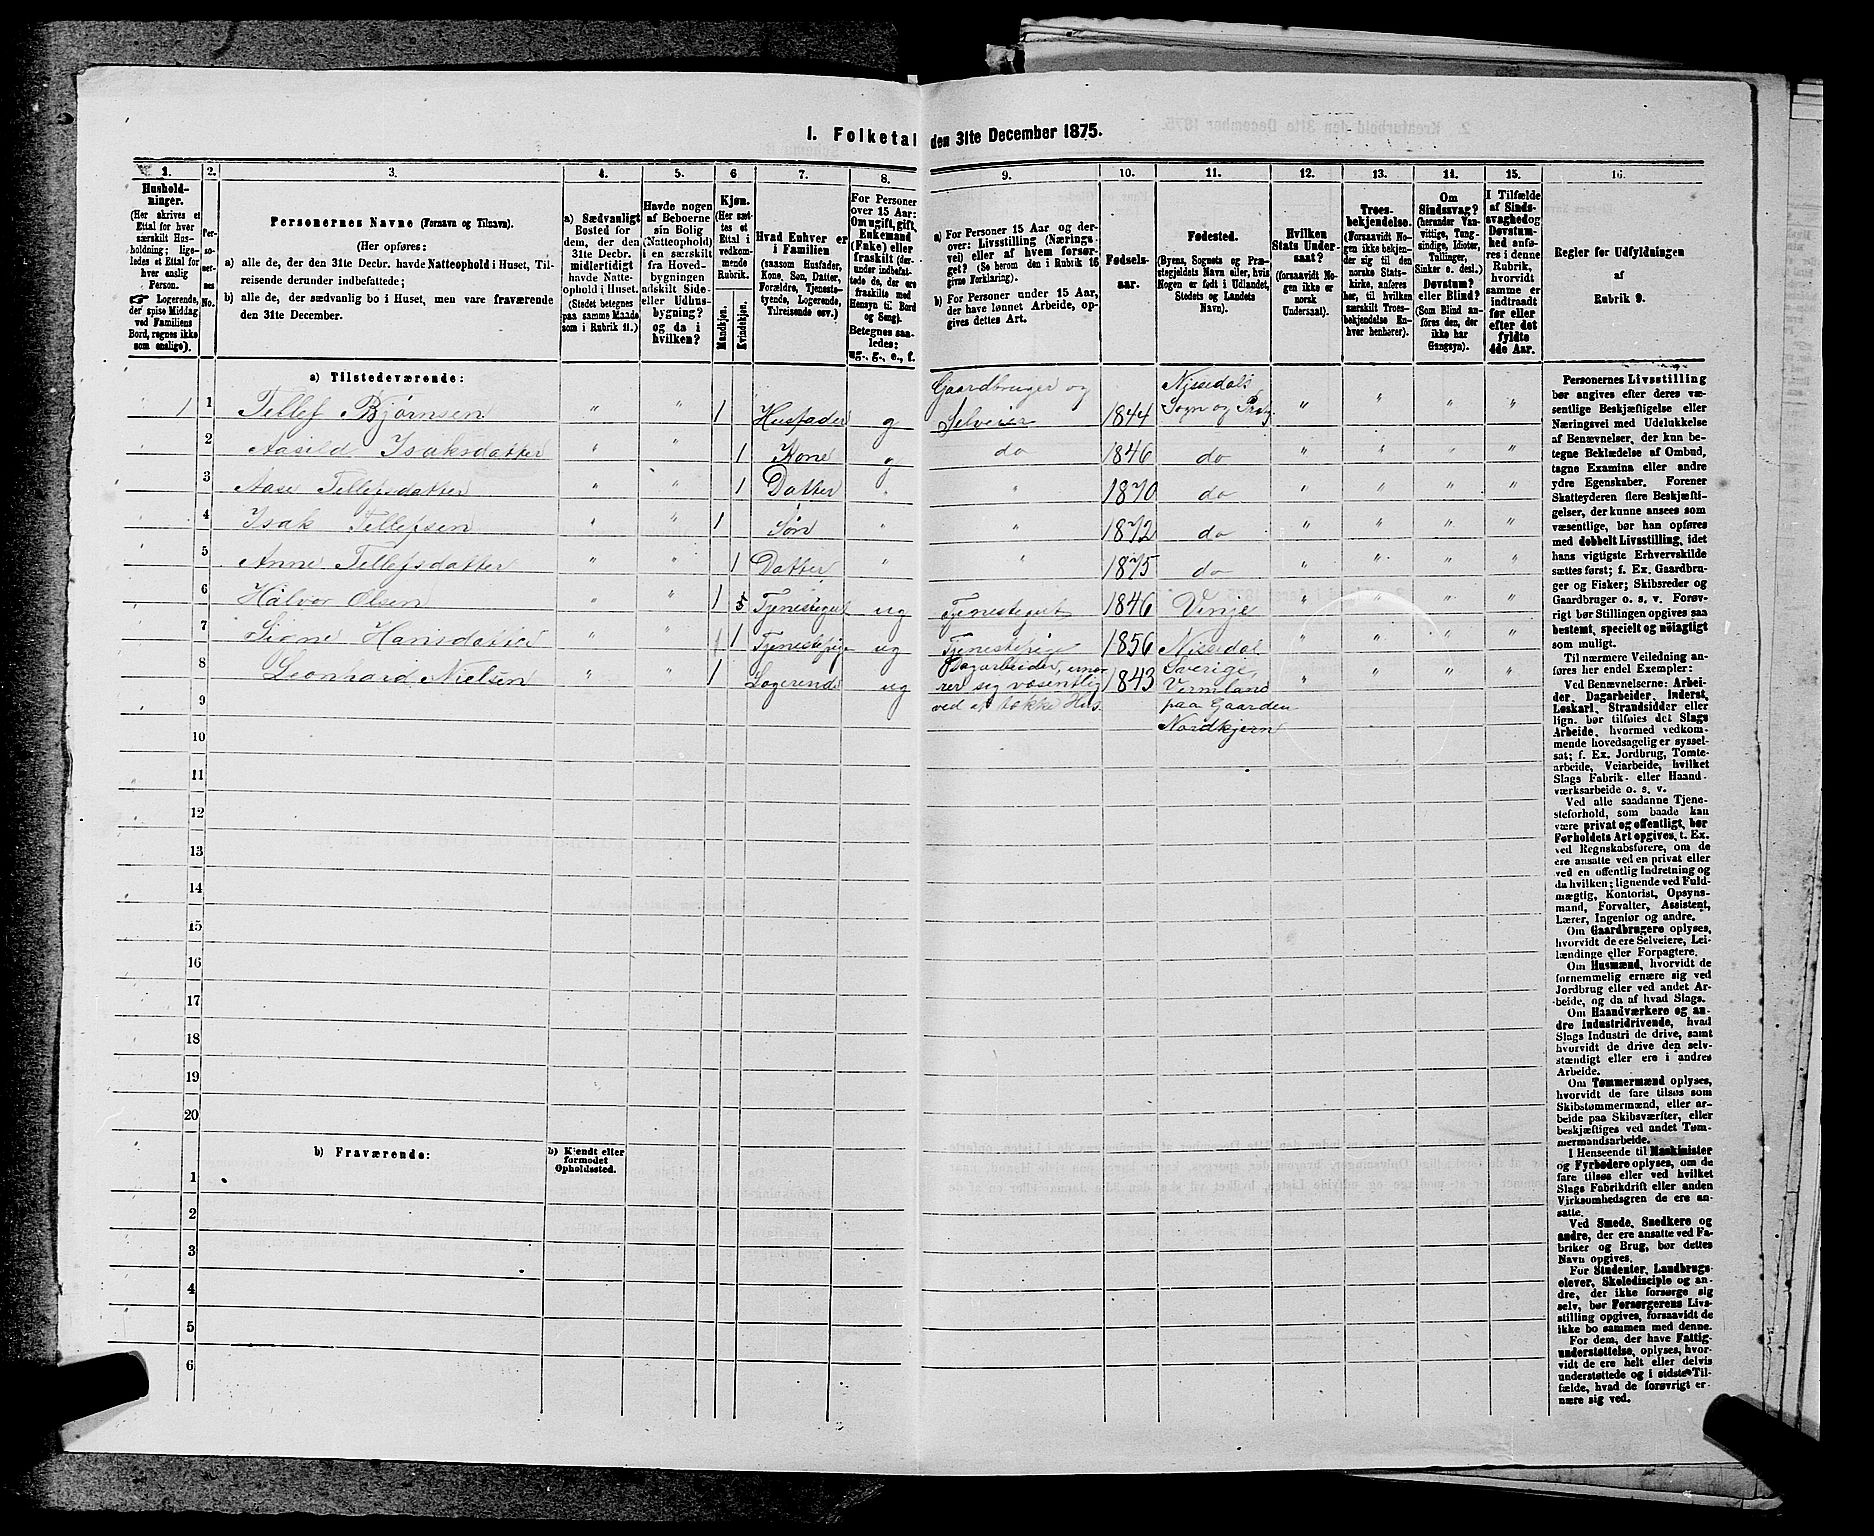 1. Folketal den 31te December 1875.
1. 2. 3. 4. 5. 6 7. 8. 9. 10. 11. 12. 13. 14. 15. 16.
Hushold-
ninger.
(Her skrives et
Ettal for hver
særskilt Hus-
holdning; lige-
ledes et Ettal for
hver enslig
Person.
Logerende,
der spise Middag
ved Familiens
Bord, regnes ikke
som enslige).
Per-
so-
ner-
nes
No.
Personernes Navne (Fornavn og Tilnavn).
(Her opføres:
a) alle de, der den 31te Decbr. havde Natteophold i Huset, Til-
reisende derunder indbefattede;
b) alle de, der sædvanlig bo i Huset, men vare fraværende
den 31te December.
a) Sædvanligt
Bosted for
dem, der den
31te Decbr.
midlertidigt
havde Natte-
ophold i Huset.
(Stedet betegnes
paa samme Maade
som i Rubrik 11.)
Havde nogen
af Beboerne
sin Bolig
(Natteophold)
i en særskilt
fra Hoved-
bygningen
adskilt Side-
eller Udhus-
bygning?
og da i
hvilken?
Kjøn.
(Her sæt-
tes et
Ettal i
vedkom-
mende
Rubrik.
Mandkjøn.
Kvindekjøn.
Hvad Enhver er
i Familien
(saasom Husfader,
Kone, Søn, Datter,
Forældre, Tjeneste-
tyende, Logerende,
Tilreisende osv.)
For Personer
over 15 Aar:
Om ugift, gift,
Enkemand
(Enke) eller
fraskilt (der-
under indbefat-
tede de, der ere
fraskilte med
Hensyn til Bord
og Seng).
Betegnes saa-
ledes:
ug., g., e., f.
a) For Personer 15 Aar og der-
over: Livsstilling (Nærings-
vei) eller af hvem forsør-
get? (Se herom den i Rubrik 16
givne Forklaring).
b) For Personer under 15 Aar,
der have lønnet Arbeide, op-
gives dettes Art.
Fødsels-
aar.
Fødested.
(Byens, Sognets og Præ-
stegjeldets Navn eller, hvis
Nogen er født i Udlandet,
Stedets og Landets
Navn).
Hvilken
Stats Under-
saat?
(forsaavidt No-
gen ikke er
norsk
Undersaat).
Troes-
bekjendelse.
(Forsaavidt No-
gen ikke bekjen-
der sig til den
norske Stats-
kirke, anføres
her, til hvilken
særskilt Troes-
bekjendelse En-
hver henhører).
Om
Sindssvag?
(herunder Van-
vittige, Tung-
sindige, Idioter,
Tullinger,
Sinker o. desl.)
Døvstum?
eller Blind?
(Som Blind an-
føres den, der
ikke har
Gangsyn).
I Tilfælde
af Sinds-
svaghed og
Døvstum-
hed anfø-
res i denne
Rubrik,
hvorvidt
samme er
indtraadt
før eller
efter det
fyldte
4de Aar.
Regler før Udfyldningen
af
Rubrik 9.
a) Tilstedeværende:
1 1 Tellef Bjørnsen " " 1 Husfader g Gaardbruger og Selveier 1844 Nissedals Sogn og Præstg " " " "
2 Aasild Isaksdatter " " 1 Kone g do 1846 do " " " "
3 Aase Tellefsdatter " " 1 Datter " " 1870 do " " " "
4 Isak Tellefsen " " 1 Søn " " 1872 do " " " "
5 Anne Tellefsdatter " " 1 Datter " " 1875 do " " " "
6 Halvor Olsen " " 1 Tjenestegut ug Tjenestegut 1846 Vinje " " " "
7 Signe Hansdatter " " 1 Tjenestepige ug Tjenestepige 1856 Nissedal " " " "
8 Leonhard Nielsen " " 1 Logerende ug Dagarbeider, ernæ-
rer sig væsentlig
ved at tække Hus. 1843 Sverige,
Vermland
paa Gaarden
Nordkjern " " " "
9
10
11
12
13
14
15
16
17
18
19
20
b) Fraværende:
b) Kjendt eller
formodet
Opholdssted.
1
2
3
4
5
6
Personernes Livsstilling
bør angives efter deres væ-
sentlige Beskjæftigelse eller
Næringsvei med Udelukkelse
af Benævnelser, der kun be-
tegne Beklædelse af Ombud,
tagne Examina eller andre
ydre Egenskaber. Forener
Skatteyderen flere Beskjæfti-
gelser, der kunne ansees som
væsentlige, bør han opføres
med dobbelt Livsstilling, idet
hans vigtigste Erhvervskilde
sættes først; f. Ex. Gaardbru-
ger og Fisker; Skibsreder og
Gaardbruger o. s. v. Forøv-
rigt bør Stillingen opgives saa
bestemt, specielt og nöiagtigt
som muligt.
Til nærmere Veiledning an-
føres her endel Exempler:
Ved Benævnelserne: Arbei-
der, Dagarbeider, Inderst,
Løskarl, Strandsidder eller
lign. bør tilføies det Slags
Arbeide, hvormed vedkom-
mende hovedsagelig er syssel-
sat; f. Ex. Jordbrug, Tomte-
arbeide, Veiarbeide, hvilket
Slags Fabrik- eller Haand-
værksarbeide o. s. v.
Ved alle saadanne Tjene-
steforhold, som baade kan
være privat og offentligt, bør
Forholdets Art opgives, t. Ex.
ved Regnskabsførere, om de
ere ansatte ved en privat eller
ved en offentlig Indretning og
da hvilken; lignende ved Fuld-
mægtig, Kontorist, Opsyns-
mand, Forvalter, Assistent,
Lærer, Ingeniør og andre.
Om Gaardbrugere oplyses,
hvorvidt de ere Selveiere, Lei-
lændinge eller Forpagtere.
Om Husmænd, hvorvidt de
fornemmelig ernære sig ved
Jordbrug eller ved andet Ar-
beide, og da af hvad Slags.
Om Haandværkere og an-
dre Industridrivende, hvad
Slags Industri de drive, samt
hvorvidt de drive den selv-
stændigt eller ere i andres
Arbeide.
Om Tømmermænd oplyses,
hvorvidt de fare tilsøs som
Skibstømmermænd, eller ar-
beide paa Skibsværfter, eller
beskjæftiges ved andet Tøm-
mermandsarbeide.
I Henseende til Maskinister
og Fyrbødere oplyses, om de
fare tilsøs eller ved hvilket
Slags Fabrikdrift eller anden
Virksomhed de ere an-
satte.
Ved Smede, Snedkere og
andre, der ere ansatte ved Fa-
briker og Brug, bør dettes
Navn opgives.
For Studenter, Landbrugs-
elever, Skoledisciple og an-
dre, der ikke forsørge sig
selv, bør Forsørgerens Livs-
stilling opgives, forsaavidt de
ikke bo sammen med denne.
For dem, der have Fattig-
understøttelse, oplyses, hvor-
vidt de ere helt eller delvis
understøttede og i sidste Til-
fælde, hvad de forøvrigt er-
nære sig ved.